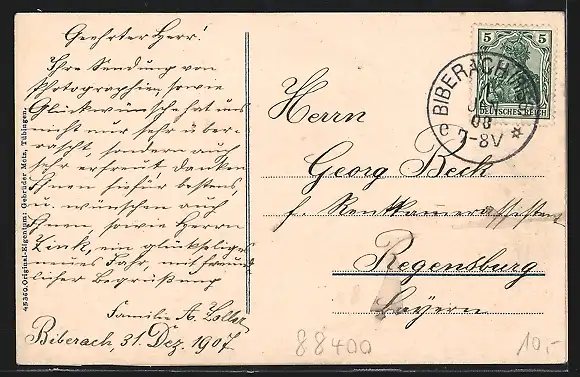 Geehrter Herr!
Ihre Sendung von
Photographien, sowie
Glückwünsche hat uns
nicht nur sehr über-
rascht, sondern auch
sehr erfreut, danken
Ihnen hiefür bestens
u. wünschen auch
Ihnen, sowie Herrn
Link, ein glückseliges
neues Jahr, mit freund-
licher Begrüßung
Familie A.
Biberach, 31. Dez. 1907
45360. Original-Eigentum: Gebrüder Metz, Tübingen.
5 5
DEUTSCHES REICH
BIBERACH
JAN
08
7-8V
Herrn
Georg Beck
f. Rentkammerassistent
Regensburg
Bayern
88400
10,-